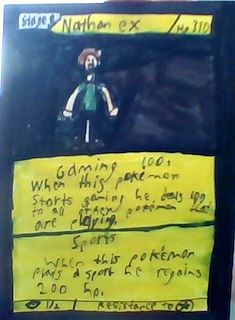 Stage 2 Nathan ex Hp 310
Gaming 100+
When this pokémon
starts gaming he deals 100
to all other pokemon that
are playing.
Sports
When this pokémon
plays a sport he regains
200 hp.
1/2 Resistance to